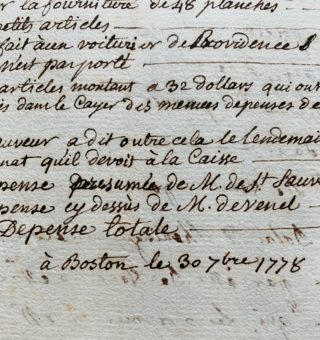 r la fourniture de 48 planches
petits articles
fait à un voiturier de Providence
n'est pas porté
articles montant a 32 dollars qui ont
is dans le Cayer des menues depenses de
auveur a dit outre cela le lendemai
nat qu'il devoit à la Caisse
pense presumée de M. de St. Sauv
pense cy dessus de M. de Venel
Depense totale
à Boston le 30 7bre 1778